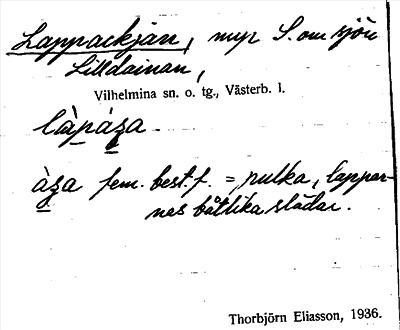 Lappackjan, myr S. om sjön
Lilldainan,
Vilhelmina sn. o. tg., Västerb. l.
làpáʒa
àʒa fem. best. f. =, pulka, lappar-
nas båtlika slädar.
Thorbjörn Eliasson, 1936.